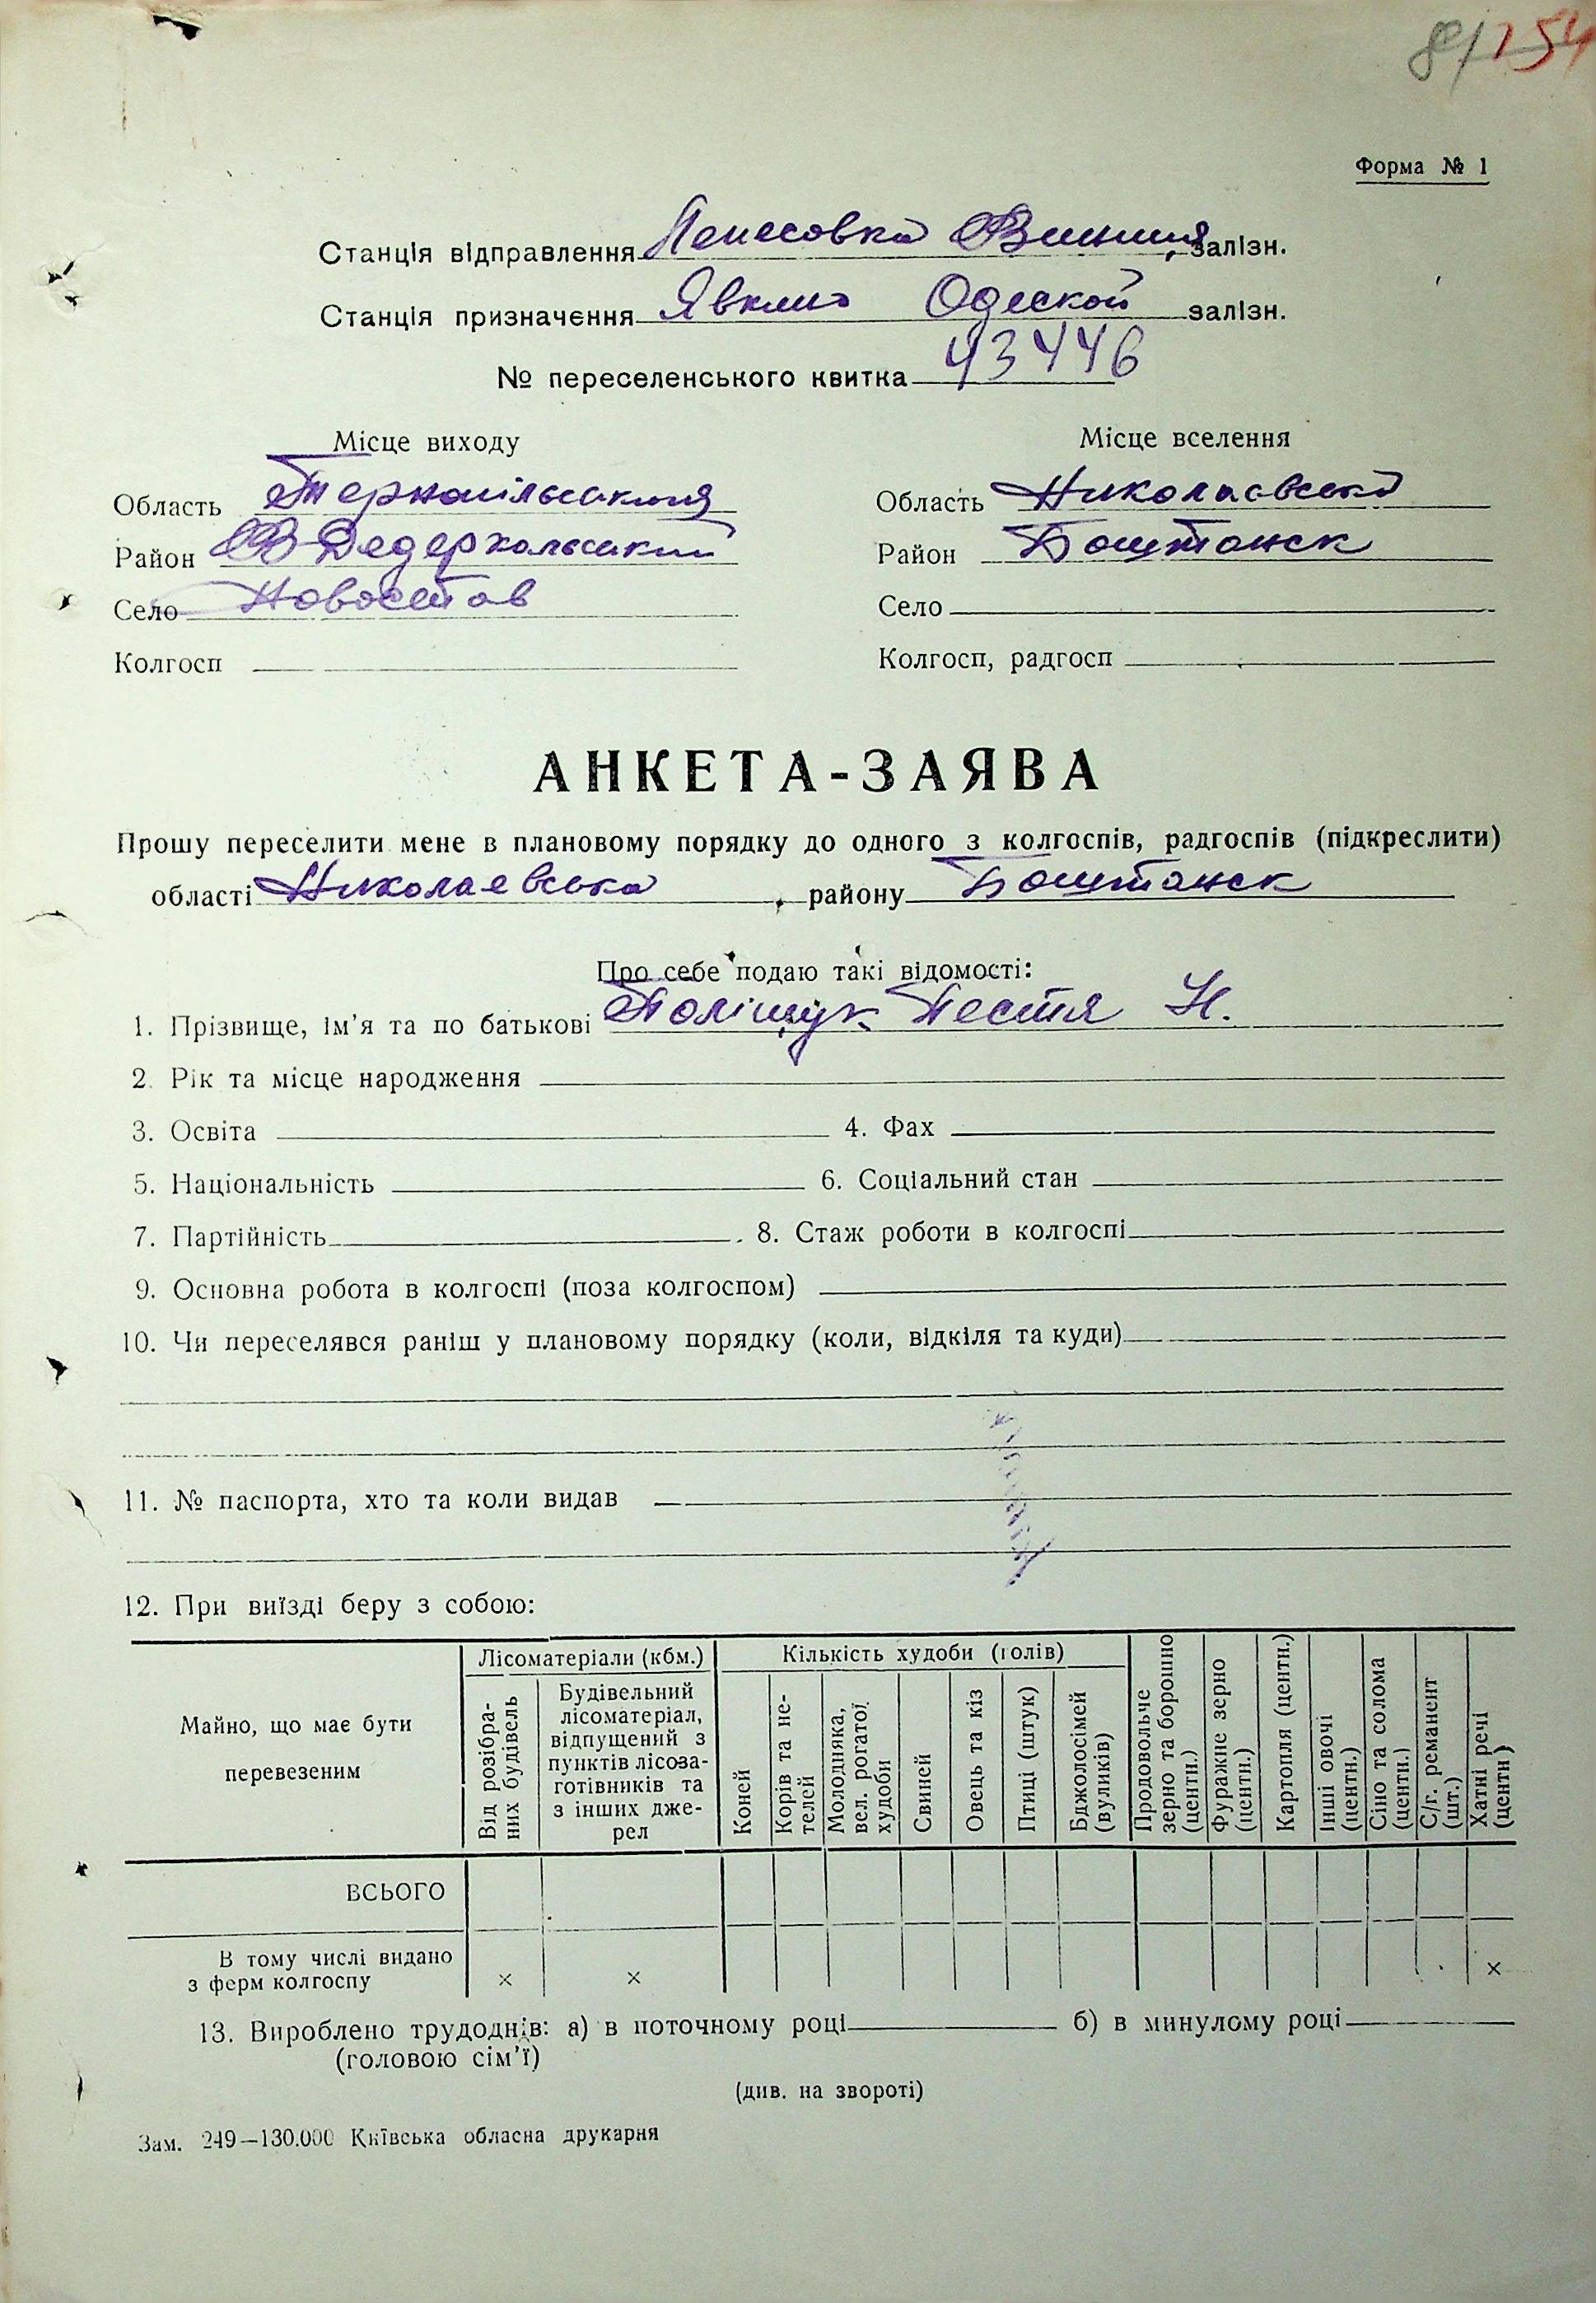 154
Форма № 1
Станція відправлення Пенесовка Винниця залізн.
Станція призначення Явкино Одеской залізн.
№ переселенського квитка 43446
Місце виходу
Місце вселення
Область Тернопільська
Область Николаевська
Район В Дедеркальський
Район Боштанск
Село Новостав
Село
Колгосп
Колгосп, радгосп
АНКЕТА-ЗАЯВА
Прошу переселити мене в плановому порядку до одного з колгоспів, радгоспів (підкреслити)
області Николаевська, району Боштанск
Про себе подаю такі відомості:
1. Прізвище, ім'я та по батькові Поліщук Н.
2. Рік та місце народження
3. Освіта 4. Фах
5. Національність 6. Соціальний стан
7. Партійність 8. Стаж роботи в колгоспі
9. Основна робота в колгоспі (поза колгоспом)
10. Чи переселявся раніш у плановому порядку (коли, відкіля та куди)
11. № паспорта, хто та коли видав
12. При виїзді беру з собою:
Майно, що має бути
перевезеним
Лісоматеріали (кбм.)
Від розібра-
них будівель
Будівельний
лісоматеріал,
відпущений з
пунктів лісоза-
готівників та
з інших дже-
рел
Кількість худоби (голів)
Коней
Корів та не-
телей
Молодняка,
вел. рогатої
худоби
Свиней
Овець та кіз
Птиці (штук)
Бджолосімей
(вуликів)
Продовольче
зерно та борошно
(центн.)
Фуражне зерно
(центн.)
Картопля (центн.)
Інші овочі
(центн.)
Сіно та солома
(центн.)
С/г. реманент
(шт.)
Хатні речі
(центн)
ВСЬОГО
В тому числі видано
з ферм колгоспу × × ×
13. Вироблено трудоднів: а) в поточному році б) в минулому році
(головою сім'ї)
(див. на звороті)
Зам. 249—130.000 Київська обласна друкарня